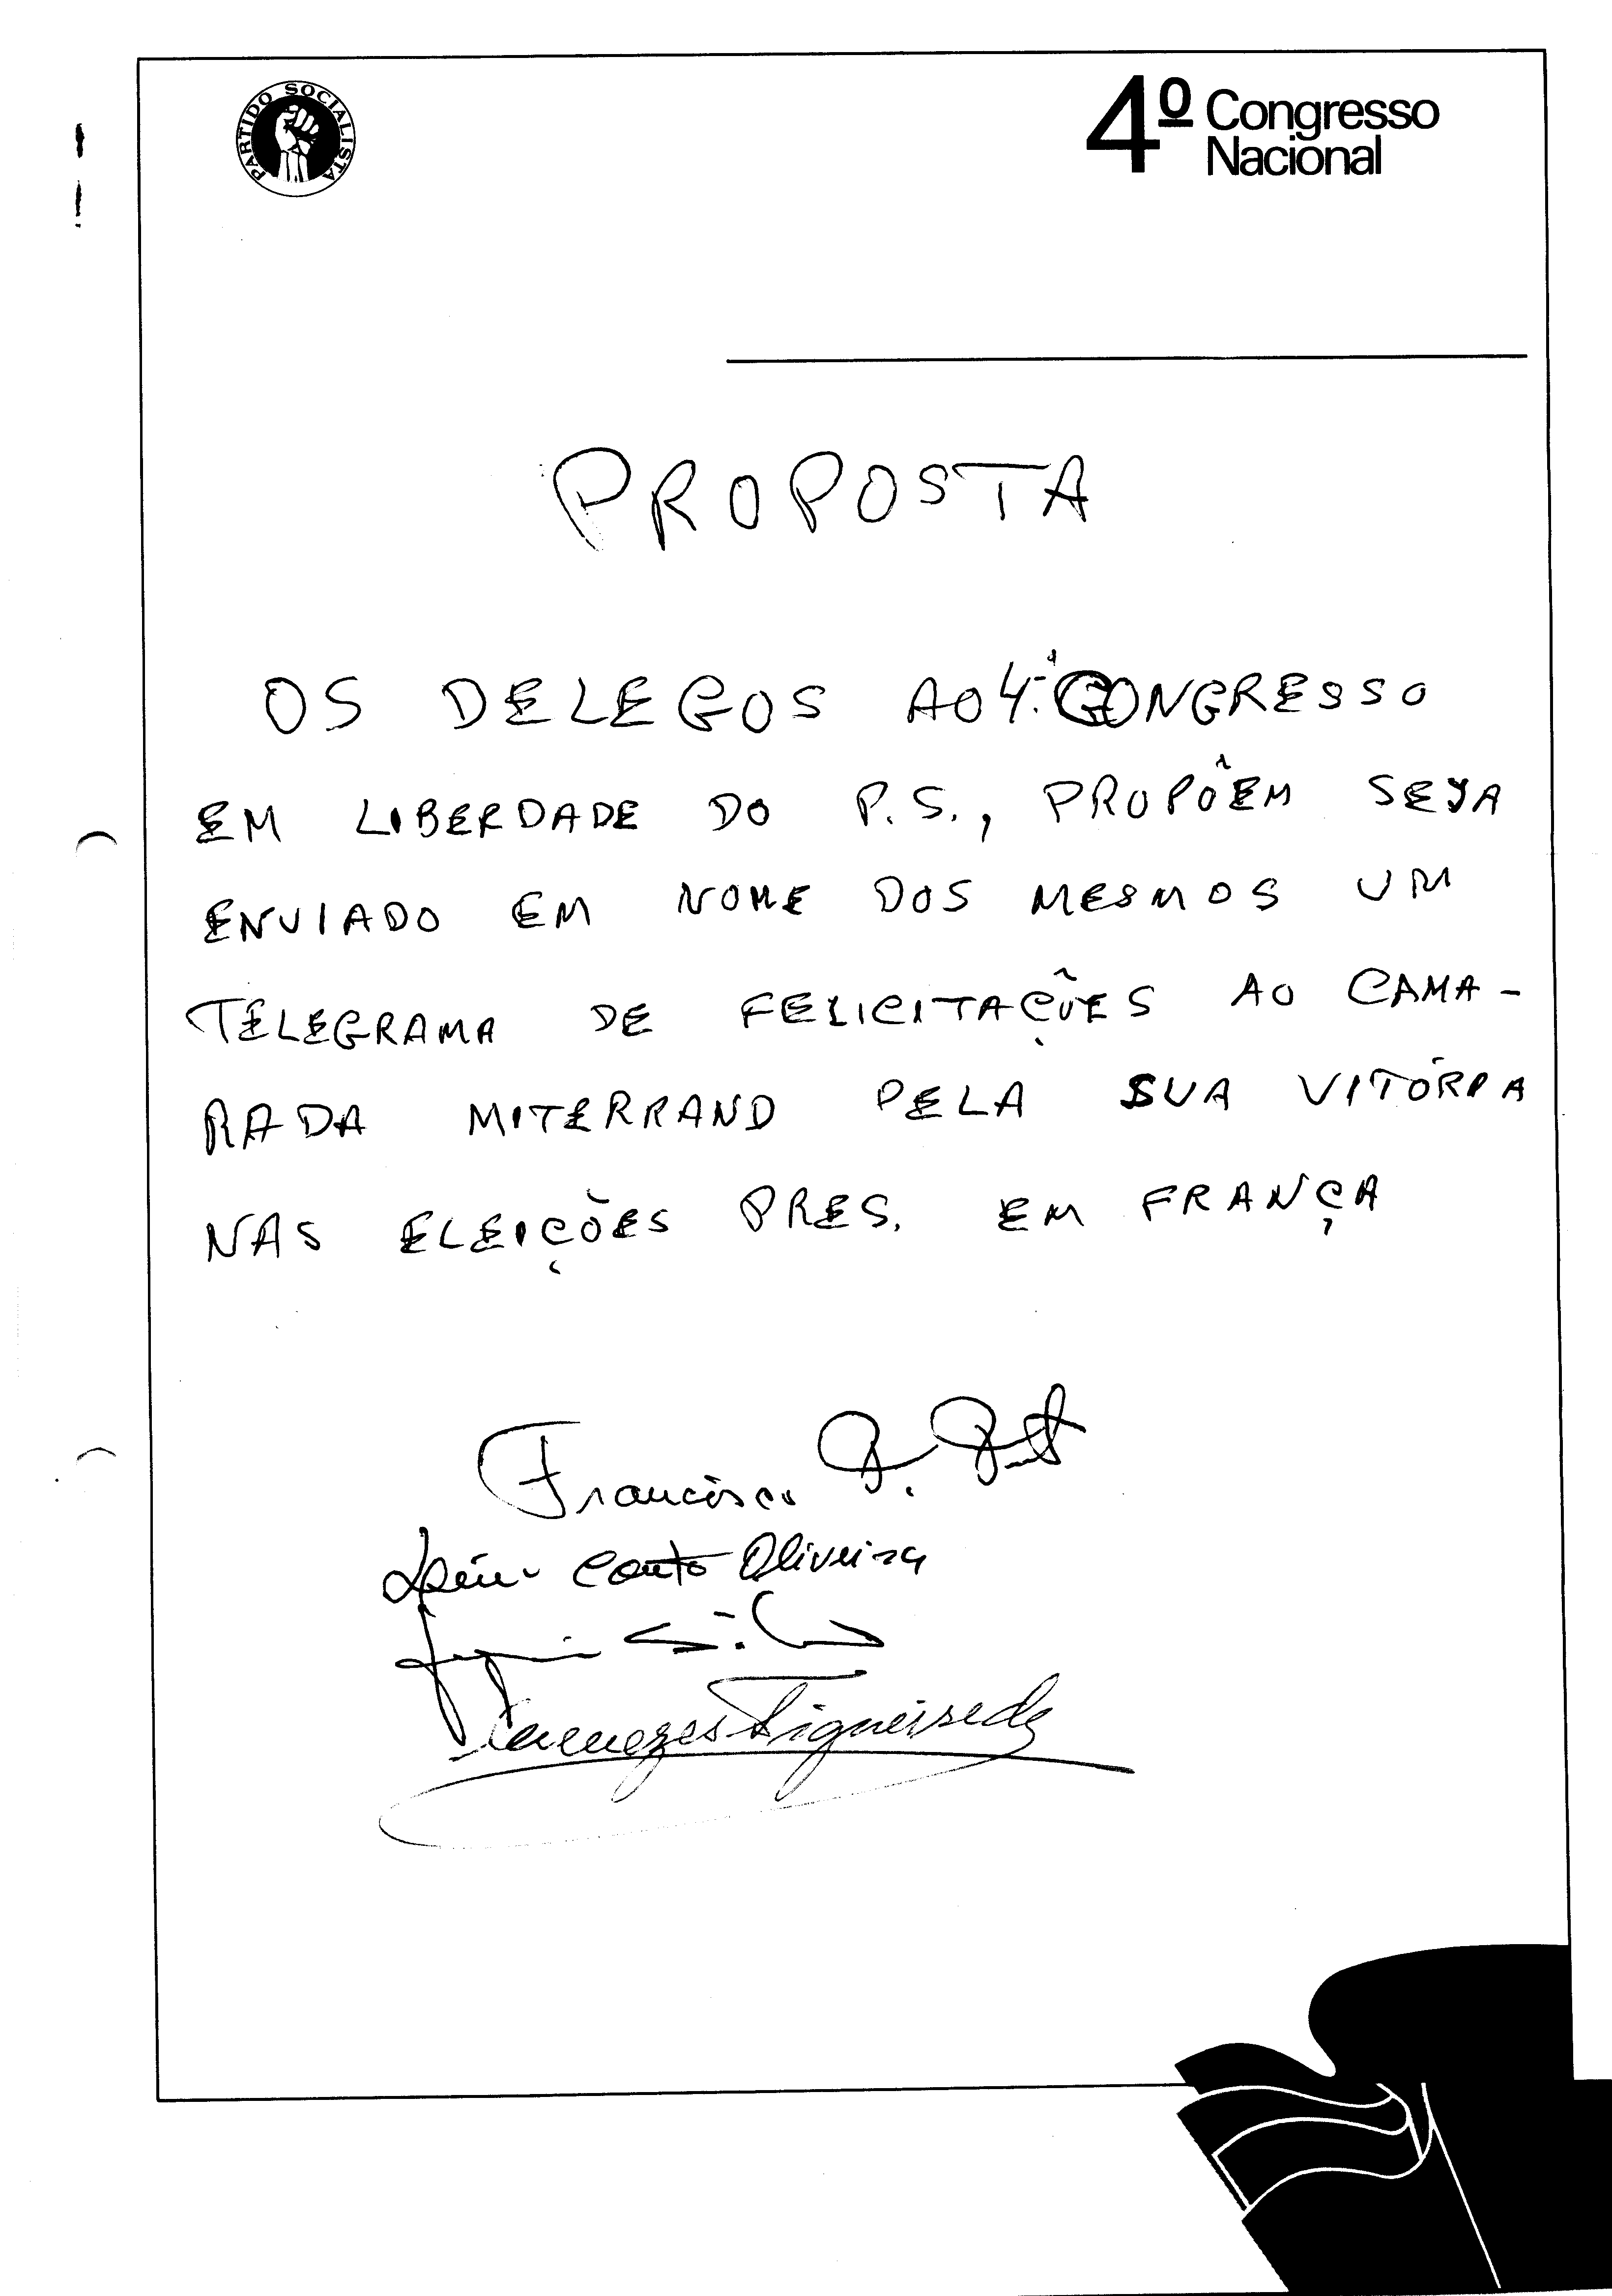 PARTIDO SOCIALISTA
4º Congresso
Nacional
PROPOSTA
OS DELEGOS AO 4º CONGRESSO
EM LIBERDADE DO P.S., PROPÔEM SEJA
ENVIADO EM NOME DOS MESMOS UM
TELEGRAMA DE FELICITAÇÕES AO CAMA-
RADA MITERRAND PELA SUA VITÓRIA
NAS ELEIÇÕES PRES. EM FRANÇA
Francisco
Couto Oliveira
Menezes Figueiredo